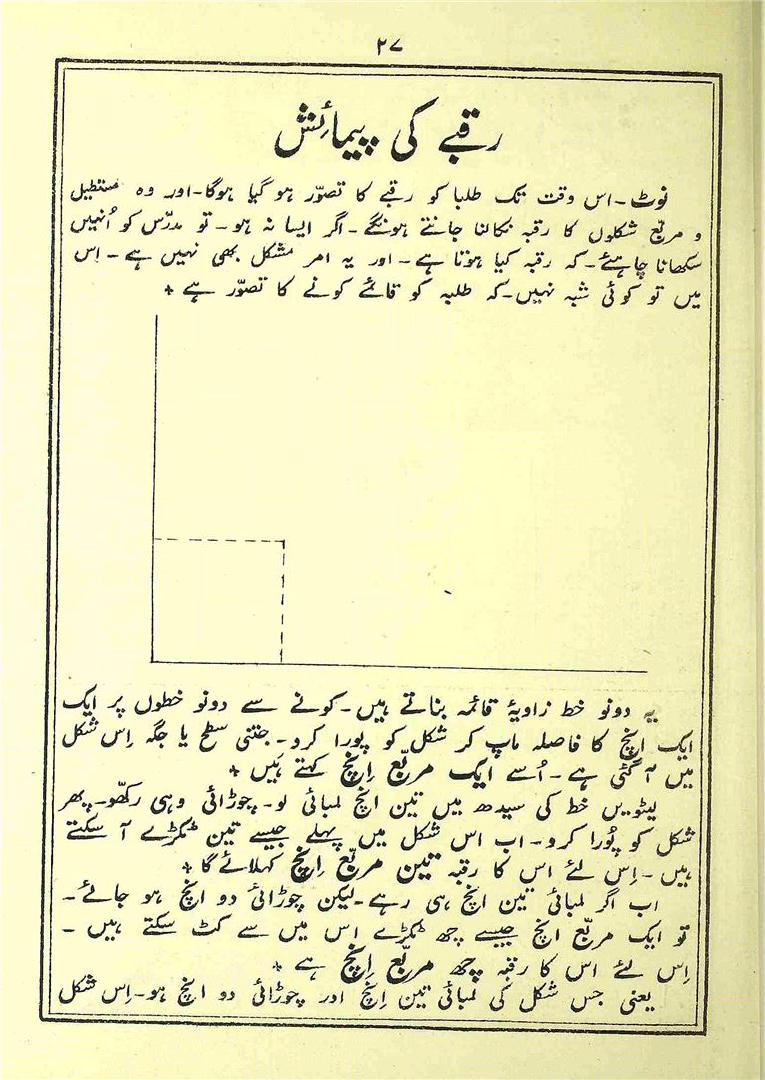 ۲۷
رقبے کی پیمائش
نوٹ۔اس وقت تک طلبا کو رقبے کا تصوّر ہو گیا ہوگا۔اور وہ مستطیل
و مربّع شکلوں کا رقبہ نکالنا جانتے ہونگے۔اگر ایسا نہ ہو۔ تو مدرّس کو اُنہیں
سکھانا چاہئے۔کہ رقبہ کیا ہوتا ہے۔ اور یہ امر مشکل بھی نہیں ہے۔ اِس
میں تو کوئی شبہ نہیں۔کہ طلبہ کو قائمے کونے کا تصوّر ہے +
یہ دونو خط زاویۂ قائمہ بناتے ہیں۔کونے سے دونو خطوں پر ایک
ایک اِنچ کا فاصلہ ماپ کر شکل کو پورا کرو۔ جتنی سطح یا جگہ اِس شکل
میں آ گئی ہے۔اُسے ایک مربّع اِنچ کہتے ہیں +
لیٹویں خط کی سیدھ میں تین اِنچ لمبائی لو۔ چوڑائی وہی رکھّو۔پھر
شکل کو پُورا کرو۔ اب اس شکل میں پہلے جیسے تین ٹکڑے آ سکتے
ہیں۔اِس لئے اس کا رقبہ تین مربّع اِنچ کہلائے گا +
اب اگر لمبائی تین اِنچ ہی رہے۔لیکن چوڑائی دو اِنچ ہو جائے۔
تو ایک مربّع اِنچ جیسے چھ ٹکڑے اس میں سے کٹ سکتے ہیں۔
اِس لئے اس کا رقبہ چھ مربّع اِنچ ہے +
یعنی جس شکل کی لمبائی تین اِنچ اور چوڑائی دو اِنچ ہو۔اِس شکل